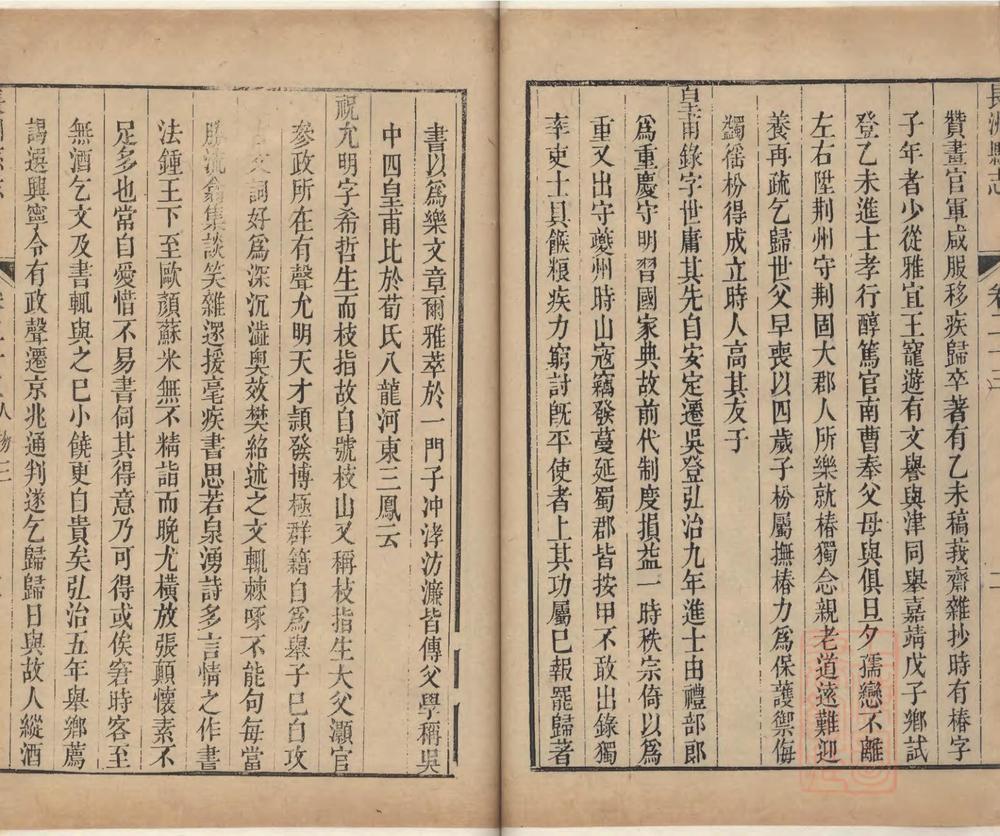 長洲縣志
贊畫官軍咸服移疾歸卒著有乙未稿莪齋雜抄時有椿字
子年者少從雅宜王寵遊有文譽與津同舉嘉靖戊子鄉試
登乙未進士孝行醇篤官南曹奉父母與俱旦夕孺戀不離
左右陞荆州守荆固大郡人所樂就椿獨念親老道遠難迎
養再疏乞歸世父早喪以四歲子枌屬撫椿力爲保護禦侮
蠲徭枌得成立時人高其友于
皇甫錄字世庸其先自安定遷吳登弘治九年進士由禮部郎
爲重慶守明習國家典故前代制度損益一時秩宗倚以爲
重又出守夔州時山寇竊發蔓延蜀郡皆按甲不敢出錄獨
率吏士具餱粮疾力窮討旣平使者上其功屬已報罷歸著
書以爲樂文章爾雅萃於一門子冲涍汸濂皆傳父學稱吳
中四皇甫比於荀氏八龍河東三鳳云
祝允明字希哲生而枝指故自號枝山又稱枝指生大父灝官
參政所在有聲允明天才頴發博極群籍自爲舉子已自攻
古文詞好爲深沉澁奧效樊紹述之文輒棘啄不能句每當
勝流翕集談笑雜遝援毫疾書思若泉湧詩多言情之作書
法鍾王下至歐顏蘇米無不精詣而晚尤橫放張顛懷素不
足多也常自愛惜不易書伺其得意乃可得或俟窘時客至
無酒乞文及書輒與之已小饒更自貴矣弘治五年舉鄉薦
謁選興寧令有政聲遷京兆通判遂乞歸歸日與故人縱酒